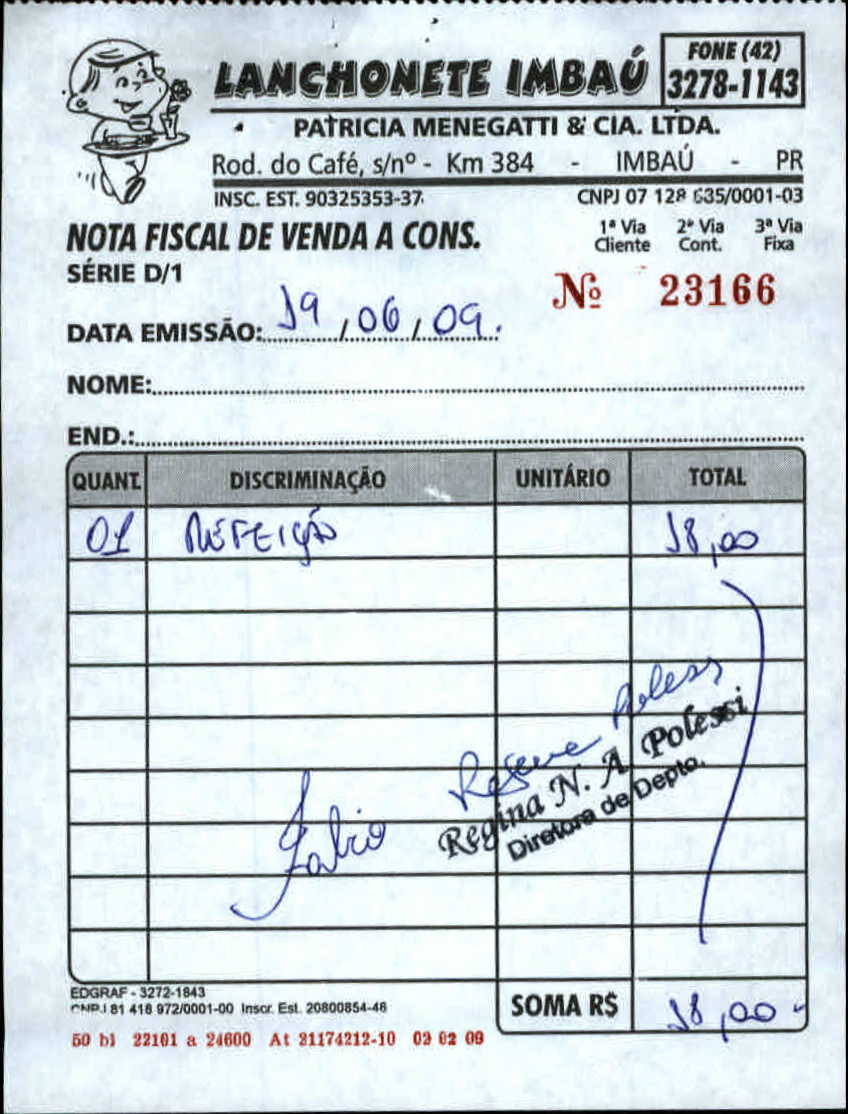 LANCHONETE IMBAÚ
FONE (42)
3278-1143
PATRICIA MENEGATTI & CIA. LTDA.
Rod. do Café, s/nº - Km 384 - IMBAÚ - PR
INSC. EST. 90325353-37 CNPJ 07 128 635/0001-03
NOTA FISCAL DE VENDA A CONS.
1ª Via 2ª Via 3ª Via
Cliente Cont. Fixa
SÉRIE D/1
Nº 23166
DATA EMISSÃO: 19 / 06 / 09.
NOME:
END.:
QUANT. DISCRIMINAÇÃO UNITÁRIO TOTAL
01 REFEIÇÃO 18,00
Regina Polessi
Regina N. A. Polessi
Diretora de Depto.
Fabio
EDGRAF - 3272-1843
CNPJ 81 418 972/0001-00 Inscr. Est. 20800854-46
SOMA R$ 18,00-
50 bl 22101 a 24600 At 21174212-10 02 02 09